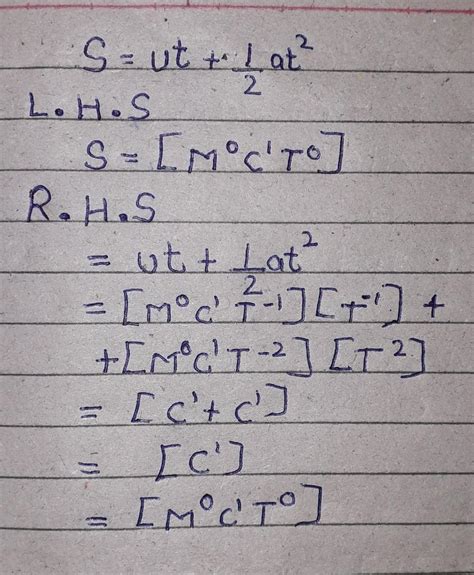 S = ut + 1/2 at²
L.H.S
S = [M⁰C¹T⁰]
R.H.S
= ut + 1/2 at²
= [M⁰C¹T⁻¹][T⁻¹] +
+[M⁰C¹T⁻²] [T²]
= [C¹+C¹]
= [C¹]
= [M⁰C¹T⁰]